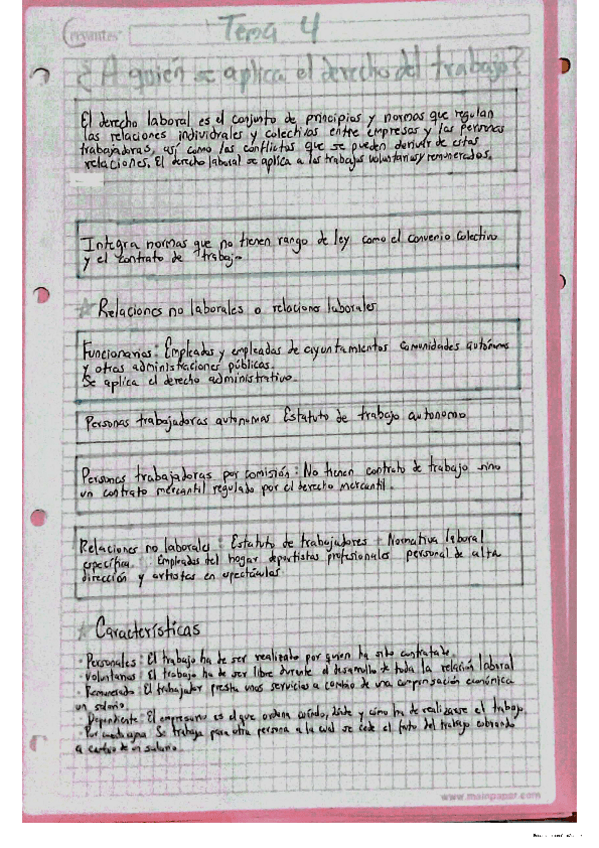 Cervantes
Tema 4
¿A quién se aplica el derecho del trabajo?
El derecho laboral es el conjunto de principios y normas que regulan
las relaciones individuales y colectivas entre empresas y las personas
trabajadoras, así como los conflictos que se pueden derivar de estas
relaciones. El derecho laboral se aplica a los trabajos voluntarios y remunerados.
Integra normas que no tienen rango de ley como el convenio colectivo
y el contrato de trabajo
Relaciones no laborales o relaciones laborales
Funcionarios: Empleadas y empleadas de ayuntamientos comunidades autónomas
y otras administraciones públicas.
Se aplica el derecho administrativo.
Personas trabajadoras autonomas Estatuto de trabajo autonomo
Personas trabajadoras por comisión: No tienen contrato de trabajo sino
un contrato mercantil regulado por el derecho mercantil.
Relaciones no laborales: Estatuto de trabajadores + Normativa laboral
específica: Empleadas del hogar deportistas profesionales personal de alta
dirección y artistas en espectáculos
Características
· Personales: El trabajo ha de ser realizado por quien ha sido contratado.
· Voluntarios: El trabajo ha de ser libre durante el desarrollo de toda la relación laboral
· Remunerado: El trabajador presta unos servicios a cambio de una compensación económica
un salario.
· Dependiente: El empresario es el que ordena cuándo, dónde y cómo ha de realizarse el trabajo.
· Por cuenta ajena Se trabaja para otra persona a la cual se cede el fruto del trabajo cobrando
a cambio de un salario.
www.mainpaper.com